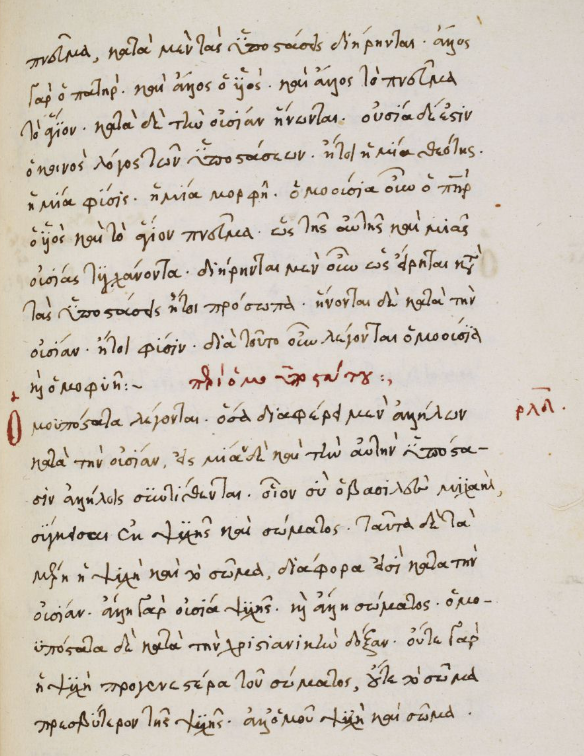 πνεῦμα, κατὰ μὲν τὰς ὑποστάσεις διῄρηνται· ἄλλος
γὰρ ὁ πατήρ· καὶ ἄλλος ὁ υἱός· καὶ ἄλλος τὸ πνεῦμα
τὸ ἅγιον· κατὰ δὲ τὴν οὐσίαν ἥνωνται· οὐσία δέ ἐστιν
ὁ κοινὸς λόγος τῶν ὑποστάσεων· ἤτοι ἡ μία θεότης·
ἡ μία φύσις· ἡ μία μορφή· ὁμοούσια οὖν ὁ πηρ
ὁ υἱὸς καὶ τὸ ἅγιον πνεῦμα· ὡς τῆς αὐτῆς καὶ μιᾶς
οὐσίας τυγχάνοντα· διῄρηνται μὲν οὖν ὡς εἴρηται κατὰ
τὰς ὑποστάσεις ἤτοι πρόσωπα· ἥνονται δὲ κατὰ τὴν
οὐσίαν· ἤτοι φύσιν· διὰ τοῦτο οὖν λέγονται ὁμοούσια
καὶ ὁμοφυῆ:~ περὶ ὁμοϋποστάτου:,
Ὁμοϋπόστατα λέγονται· ὅσα διαφέρει μὲν ἀλλήλων
κατὰ τὴν οὐσίαν, εἰς μίαν δὲ καὶ τὴν αὐτὴν ὑπόστα-
σιν ἀλλήλοις συντίθενται· οἷον
ἐκ ψυχῆς καὶ σώματος· ταῦτα δὲ τὰ
μέρη ἡ ψυχὴ καὶ τὸ σῶμα, διάφορα εἰσὶ κατὰ τὴν
οὐσίαν· ἄλλη γὰρ οὐσία ψυχῆς· καὶ ἄλλη σώματος· ὁμο-
ϋπόστατα δὲ κατὰ τὴν χριστιανικὴν δόξαν· οὔτε γὰρ
ἡ ψυχὴ προγενεστέρα τοῦ σώματος, οὔτε τὸ σῶμα
πρεσβύτερον τῆς ψυχῆς· ἀλλ' ὁμοῦ ψυχὴ καὶ σῶμα·